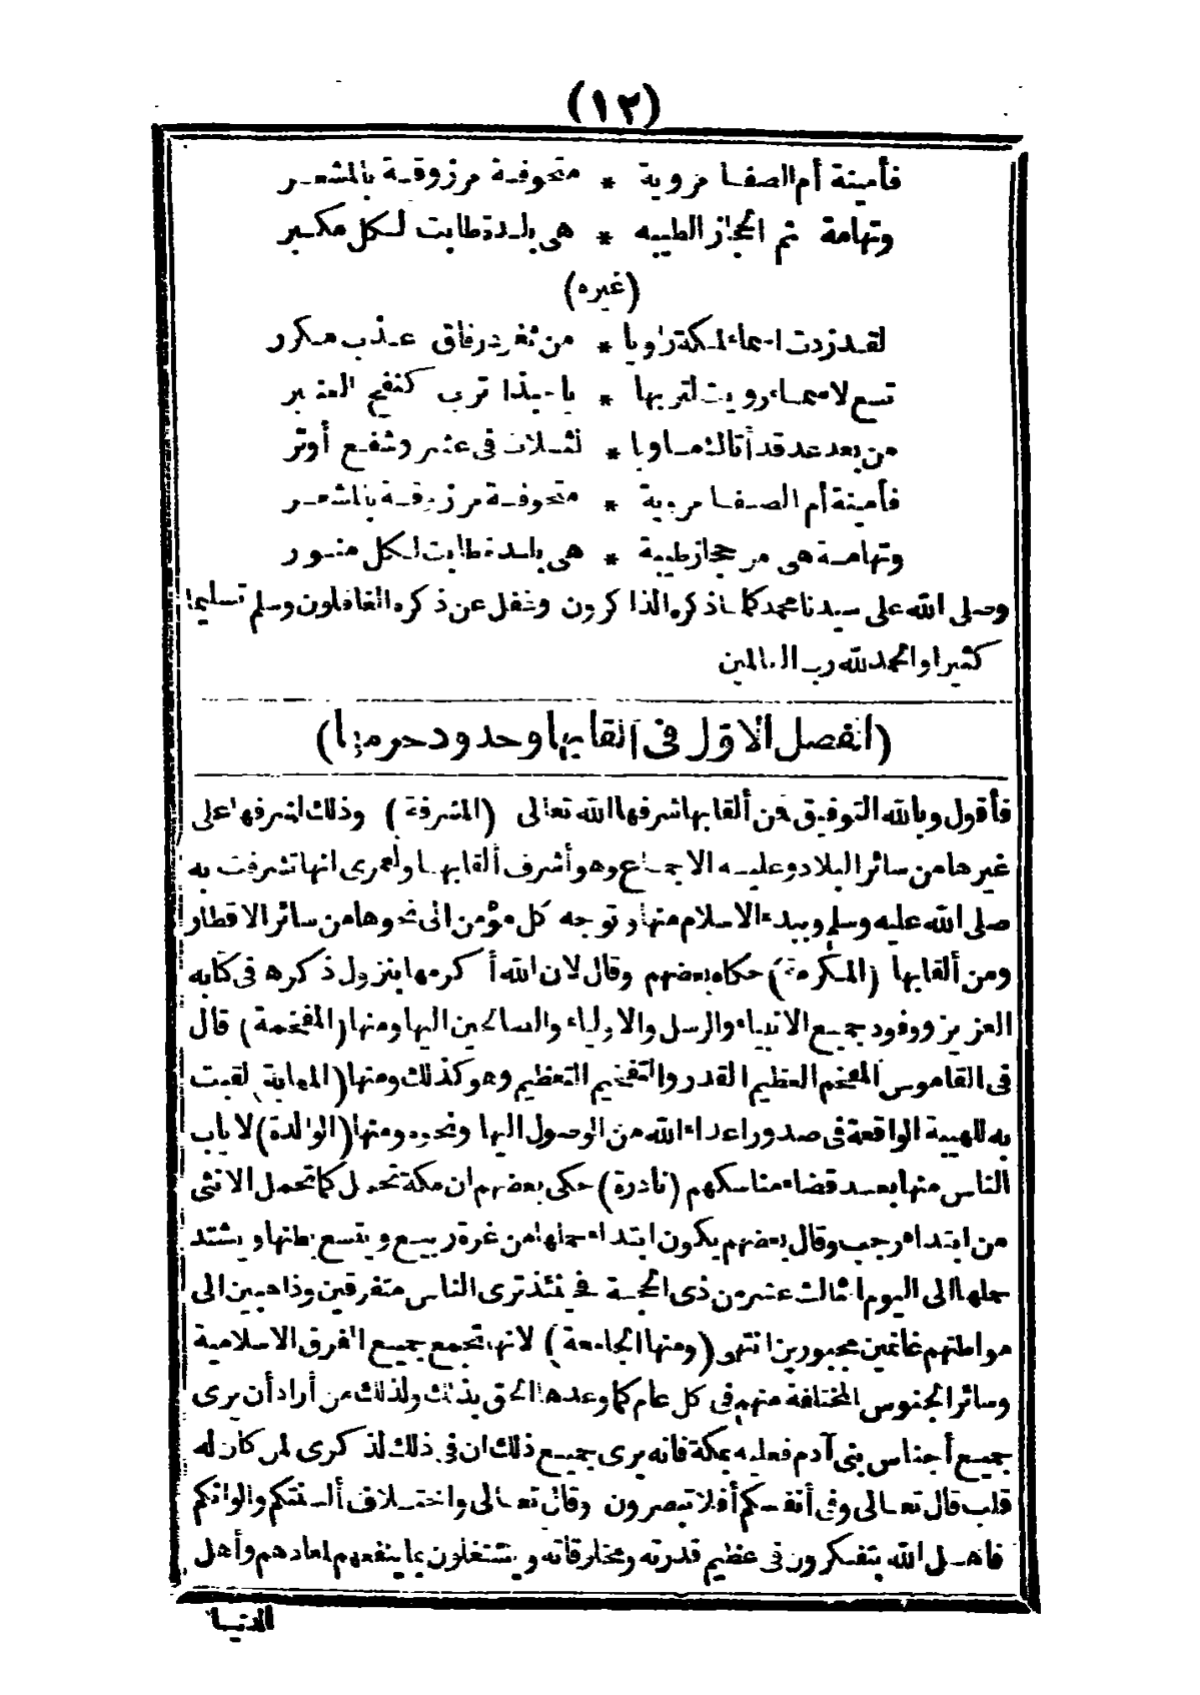 (١٢)
فأمينة أم الصفا مروية * متحوفة مرزوقة بالمشعر
وتهامة ثم الحجاز الطيبه * هى بلدة طابت لكل مكبر
(غيره)
لقد زدت اسماء لمكة راويا * من ثغر رفاق عذب مكرر
تسع لاسماء رويت لتربها * يا حبذا ترب كنفح العنبر
من بعد عد قد أتالثماويا * لثلاث فى عشر وشفع أوتر
فأمينة أم الصفا مروية * متحوفة مرزوقة بالمشعر
وتهامة هى مر حجاز طيبة * هى بلدة طابت لكل منور
وصلى الله على سيدنا محمد كلما ذكره الذاكرون وغفل عن ذكره الغافلون وسلم تسليما
كثيرا والحمد لله رب العالمين
(الفصل الاوّل فى ألقابها وحدود حرمها)
فأقول وبالله التوفيق فمن ألقابها شرفها الله تعالى (المشرفة) وذلك لشرفها على
غيرها من سائر البلاد وعليه الاجماع وهو أشرف ألقابها ولعمرى انها تشرفت به
صلى الله عليه وسلم وببدء الاسلام منها وتوجه كل مؤمن الى نحوها من سائر الاقطار
ومن ألقابها (المكرمة) حكاه بعضهم وقال لان الله أكرمها بنزول ذكره فى كتابه
العزيز ووفود جميع الانبياء والرسل والاولياء والصالحين اليها ومنها (المفخمة) قال
فى القاموس المفخم العظيم القدر والتفخيم التعظيم وهو كذلك ومنها (المهابة) لقبت
به للهيبة الواقعة فى صدور اعداء الله من الوصول اليها ونحوه ومنها (الوالدة) لاياب
الناس منها بعد قضاء مناسكهم (نادرة) حكى بعضهم ان مكة تحمل كما تحمل الانثى
من ابتداء رجب وقال بعضهم يكون ابتداء حملها من غرة ربيع ويتسع بطنها ويشتد
حملها الى اليوم الثالث عشر من ذى الحجة فحينئذ ترى الناس متفرقين وذاهبين الى
مواطنهم غانمين مجبورين انتهى (ومنها الجامعة) لانها تجمع جميع الفرق الاسلامية
وسائر الجنوس المختلفة منهم فى كل عام كما وعدها الحق بذلك ولذلك من أراد أن يرى
جميع أجناس بنى آدم فعليه بمكة فانه يرى جميع ذلك ان فى ذلك لذكرى لمن كان له
قلب قال تعالى وفى أنفسكم أفلا تبصرون وقال تعالى واختلاف ألسنتكم والوانكم
فاهل الله يتفكرون فى عظيم قدرته ومخلوقاته ويشتغلون بما ينفعهم لمعادهم وأهل
الدنيا